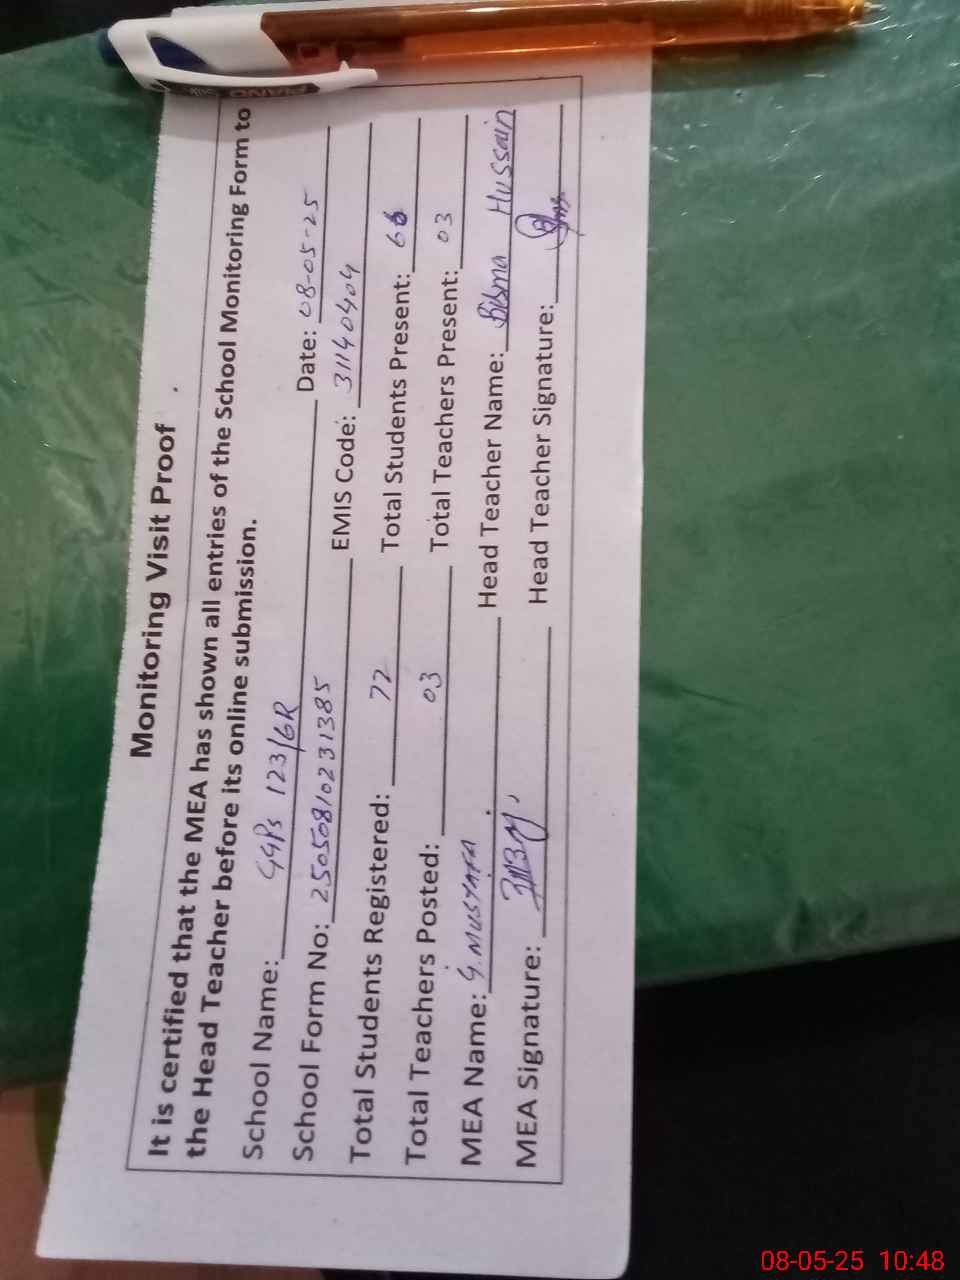 Monitoring Visit Proof
It is certified that the MEA has shown all entries of the School Monitoring Form to
the Head Teacher before its online submission.
School Name: GGPS 123/6R Date: 08-05-25
School Form No: 25050810231385 EMIS Code: 31140404
Total Students Registered: 72 Total Students Present: 66
Total Teachers Posted: 03 Total Teachers Present: 03
MEA Name: G. MUSTAFA Head Teacher Name: Bisma Hussain
MEA Signature: Head Teacher Signature:
PIANO
08-05-25 10:48